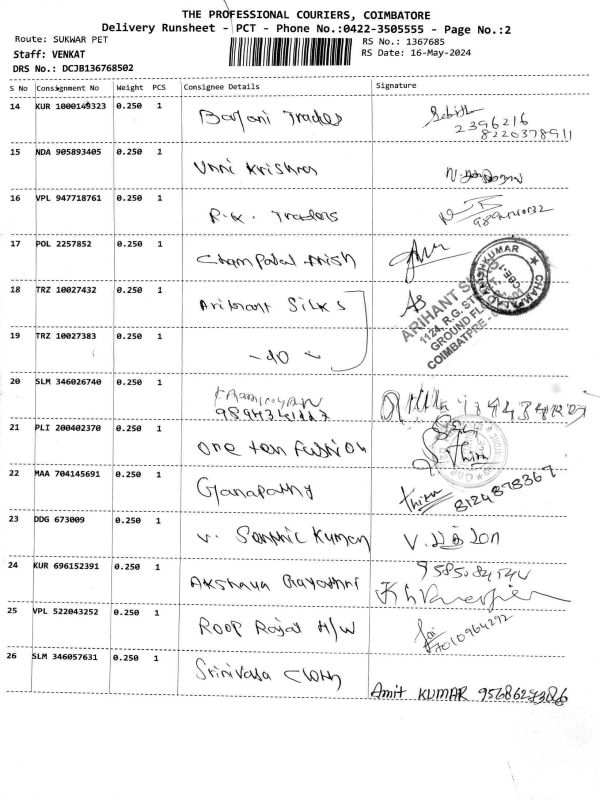 THE PROFESSIONAL COURIERS, COIMBATORE
Delivery Runsheet - PCT - Phone No.:0422-3505555 - Page No.:2
Route: SUKWAR PET
RS No.: 1367685
Staff: VENKAT
RS Date: 16-May-2024
DRS No.: DCJB136768502
S No Consignment No Weight PCS Consignee Details Signature
14 KUR 1000149323 0.250 1 Traders
2396216
8220378911
15 NDA 905893405 0.250 1 Unni Krishnan
16 VPL 947718761 0.250 1 R.K. Traders
17 POL 2257852 0.250 1 Champalal Anish
CHAMPALAL ANISHKUMAR
18 TRZ 10027432 0.250 1 Arihant Silks
ARIHANT
1124, R.G. ST
GROUND FL
COIMBATORE -
19 TRZ 10027383 0.250 1 - do -
20 SLM 346026740 0.250 1
21 PLI 200402370 0.250 1 One ten fushion
Thiru
22 MAA 704145691 0.250 1 Ganapathy Thiru 8124878367
23 DDG 673009 0.250 1 V. Senthil Kumar
24 KUR 696152391 0.250 1 Akshaya Gayathri
25 VPL 522043252 0.250 1 Roop Rajat H/W
7010964292
26 SLM 346057631 0.250 1 Srinivala Cloth
Amit KUMAR